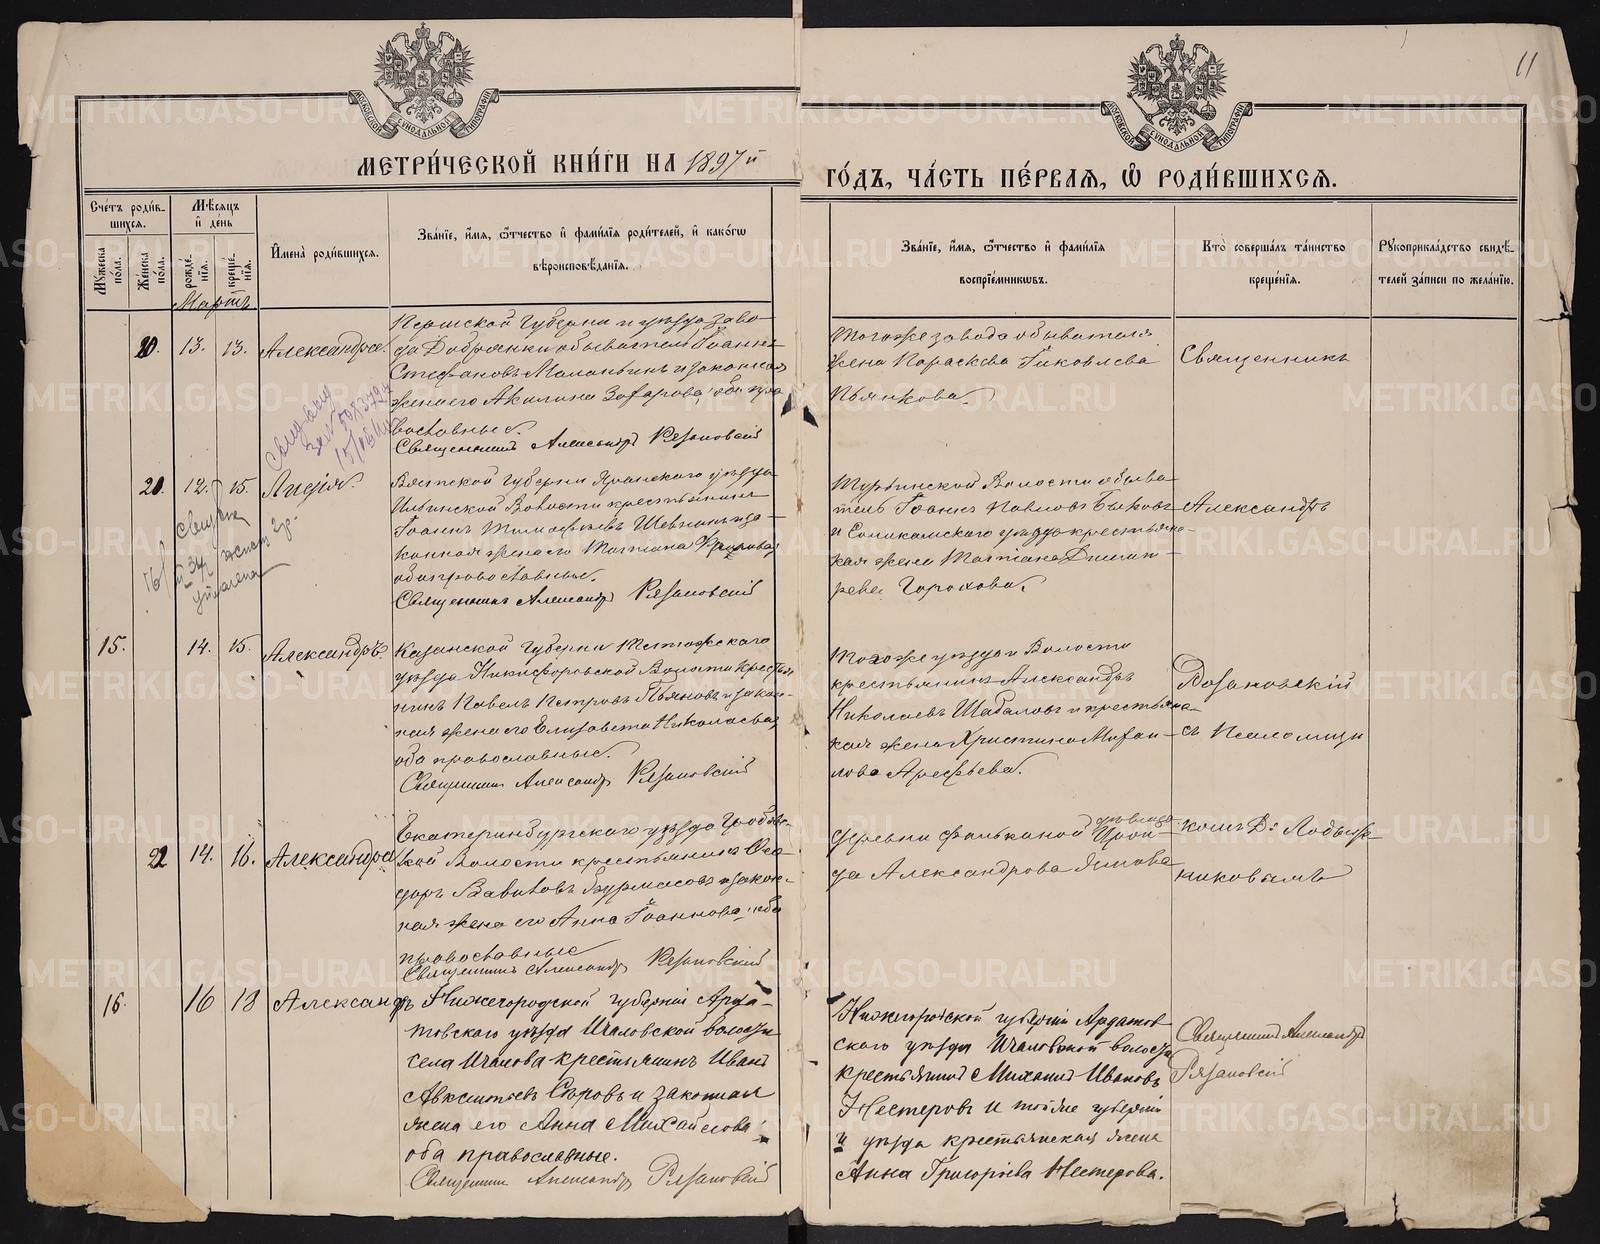 11
МЕТРИ́ЧЕСКОЙ КНИ́ГИ НА 1897й
ГО́ДЪ, ЧА́СТЬ ПЕ́РВАЯ, Ѽ РОДИ́ВШИХСЯ.
Сче́тъ роди́в-
шихся.
Мѣ́сяцъ
и҆ де́нь
Му́жеска
по́ла.
Же́нска
по́ла.
рожде́-
нїя.
креще́-
нїя.
И҆мена̀ роди́вшихся.
Зва́нїе, и҆́мя, ѻ҆́тчество и҆ фами́лїя роди́телей, и҆ како́гѡ
вѣроисповѣ́данїя.
Зва́нїе, и҆́мя, ѻ҆́тчество и҆ фами́лїя
воспрїе́мникѡвъ.
Кто̀ соверша́лъ та́инство
креще́нїя.
Рꙋкоприкла́дство свидѣ́-
телей за́писи по жела́нїю.
Мартъ
20. 13. 13. Александра.
Пермской Губернии уезда заво-
да Добрянки обыватель Іоаннъ
Стефановъ Маланьинъ и законная
жена его Акилина Захарова, оба пра
вославные.
Священникъ Александръ Рязановскій
Тогоже завода обывателя
жена Параскева Іаковлева
Пьянкова.
Священникъ
21. 12. 15. Лидія.
Вятской Губернии Яранского уезда
Ильинской Волости крестьянинъ
Іоаннъ Тимофеевъ Шевнинъ и за-
конная жена его Татіана
оба православные.
Священникъ Александръ Рязановскій
Турьинской Волости обыва
тель Іоаннъ Павловъ Быковъ
и Соликамского уезда крестьянс-
кая жена Татіана Димит-
рева Горохова.
Александръ
15. 14. 15. Александръ.
Казанской Губернии Тетюжского
уезда Никифоровской Волости крестья
нинъ Павелъ Петровъ и закон-
ная жена его Елизавета Николаева,
оба православные.
Священникъ Александръ Рязановскій
Тогоже уезда и Волости
крестьянинъ Александръ
Николаевъ Шабаловъ и крестьянс-
кая жена Христина Михаи-
лова Арефьева.
Рязановскій
съ Псаломщи
22 14. 16. Александра
Екатеринбургского уезда Гробов-
ской Волости крестьянинъ Фео-
доръ Вавиловъ Бурмасовъ и закон-
ная жена его Анна Іоаннова, оба
православные
Священникъ Александръ Рязановскій
деревни девица Ираи-
да Александрова
комъ В: Лобыр
никовымъ
16 16 18 Александръ
Нижегородской губерніи Арда-
товскаго уѣзда Ичаловской волости
села Ичалова крестьянинъ Иванъ
Авксентьевъ и законная
жена его Анна Михайлова,
оба православные.
Священникъ Александръ Рязановскій
Нижегородской губерніи Ардатов
скаго уѣзда Ичаловской волости
крестьянинъ Михаилъ Ивановъ
Нестеровъ и той же губерніи
и уѣзда крестьянская жена
Анна Григоріева Нестерова.
Священникъ Александръ
Рязановскій